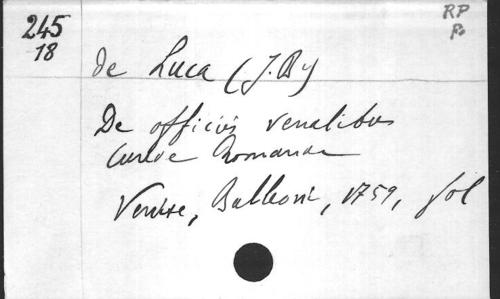 245
18
RP
de Luca (J.B)
De officiis venalibus
Curiae Romanae
Venise, Balleoni, 1759, fol